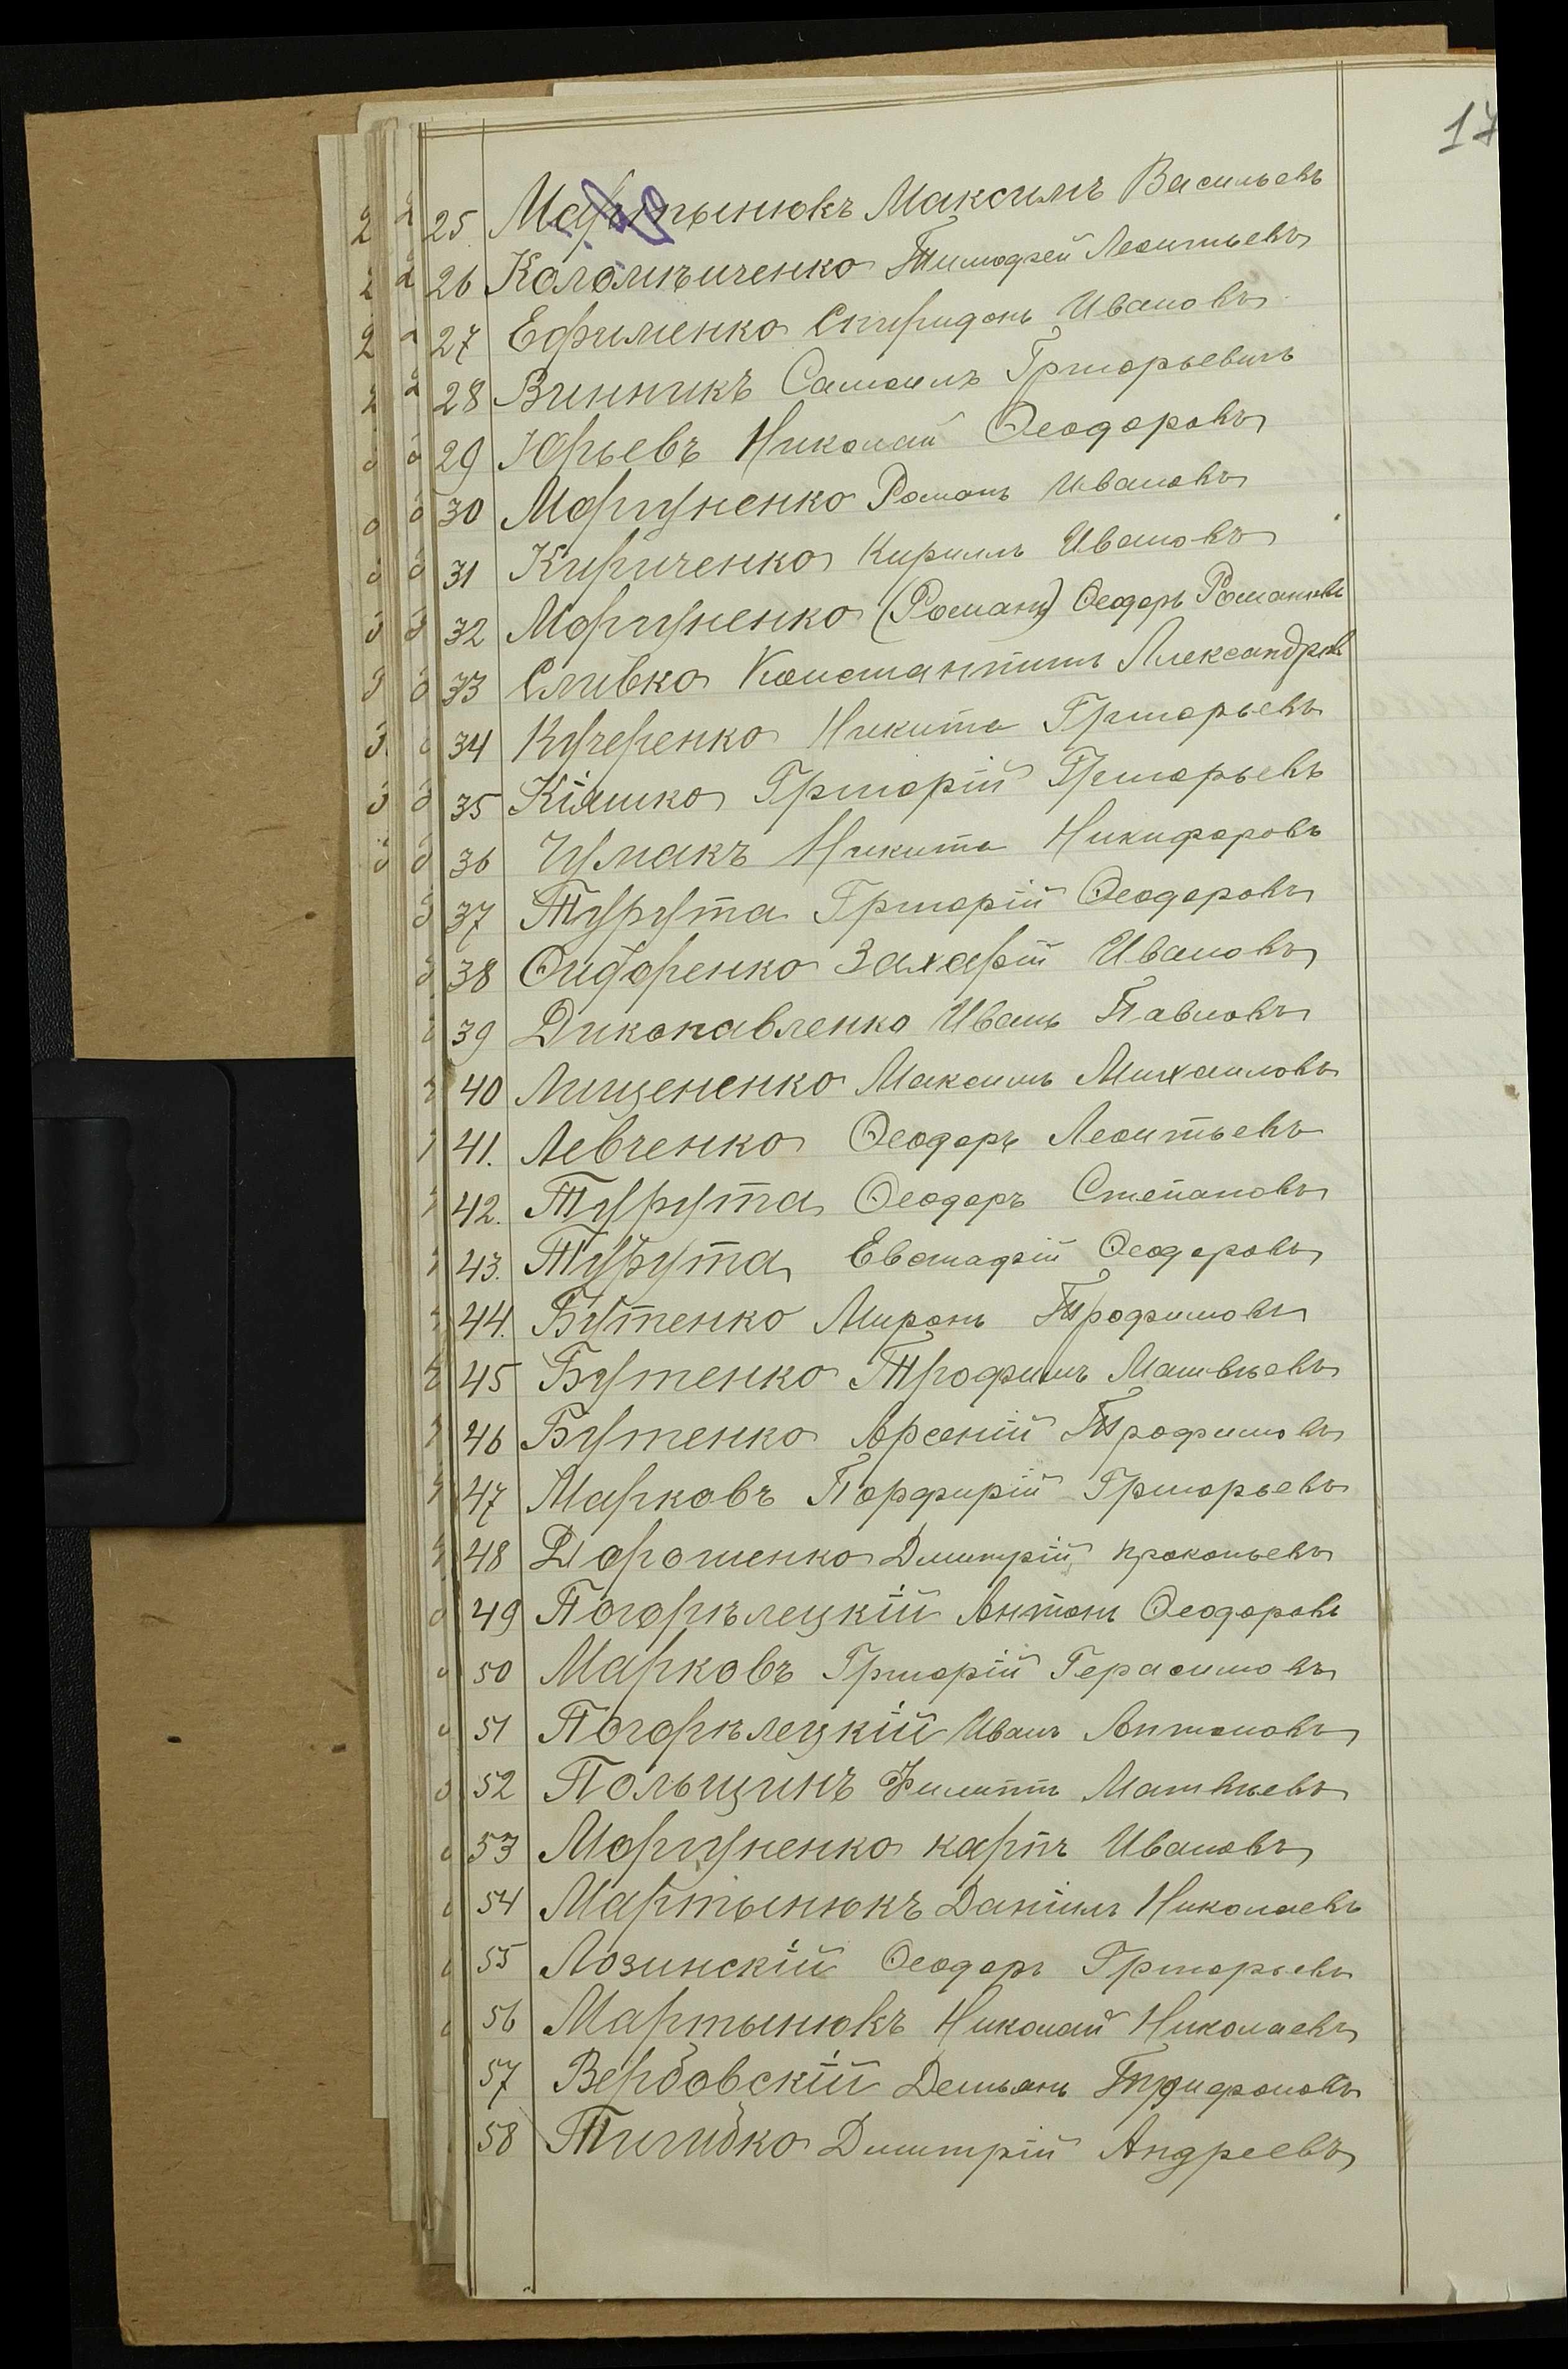 17
25. Мартынюкъ Максимъ Васильевъ
26 Коломыченко Тимофей Леонтьевъ
27 Ефименко Спиридонъ Ивановъ
28 Винникъ Самоилъ Григорьевичъ
29 Юрьевъ Николай Ѳеодоровъ
30 Моргуненко Романъ Ивановъ
31 Кириченко Кириллъ Ивановъ
32 Моргуненко (Романъ) Ѳеодоръ Романовъ
33 Сливка Константинъ Александровъ
34 Кучеренко Никита Григорьевъ
35 Кіяшко Григорій Григорьевъ
36 Чумакъ Никита Никифоровъ
37 Турута Григорій Ѳеодоровъ
38 Сидоренко Захарій Ивановъ
39 Дикопавленко Иванъ Павловъ
40 Лищененко Максимъ Михаиловъ
41. Левченко Ѳеодоръ Леонтьевъ
42. Турута Ѳеодоръ Степановъ
43. Турута Евстафій Ѳеодоровъ
44. Бутенко Миронъ Трофимовъ
45 Бутенко Трофимъ Матвѣевъ
46 Бутенко Арсеній Трофимовъ
47 Марковъ Порфирій Григорьевъ
48 Дорошенко Дмитрій Прокопьевъ
49 Погорѣлецкій Антонъ Ѳеодоровъ
50 Марковъ Григорій Герасимовъ
51 Погорѣлецкій Иванъ Антоновъ
52 Польщинъ Филиппъ Матвѣевъ
53 Моргуненко Карпъ Ивановъ
54 Мартынюкъ Даніилъ Николаевъ
55 Лозинскій Ѳеодоръ Григорьевъ
56 Мартынюкъ Николай Николаевъ
57 Вербовскій Демьянъ Трифоновъ
58 Тигибко Димитрій Андреевъ